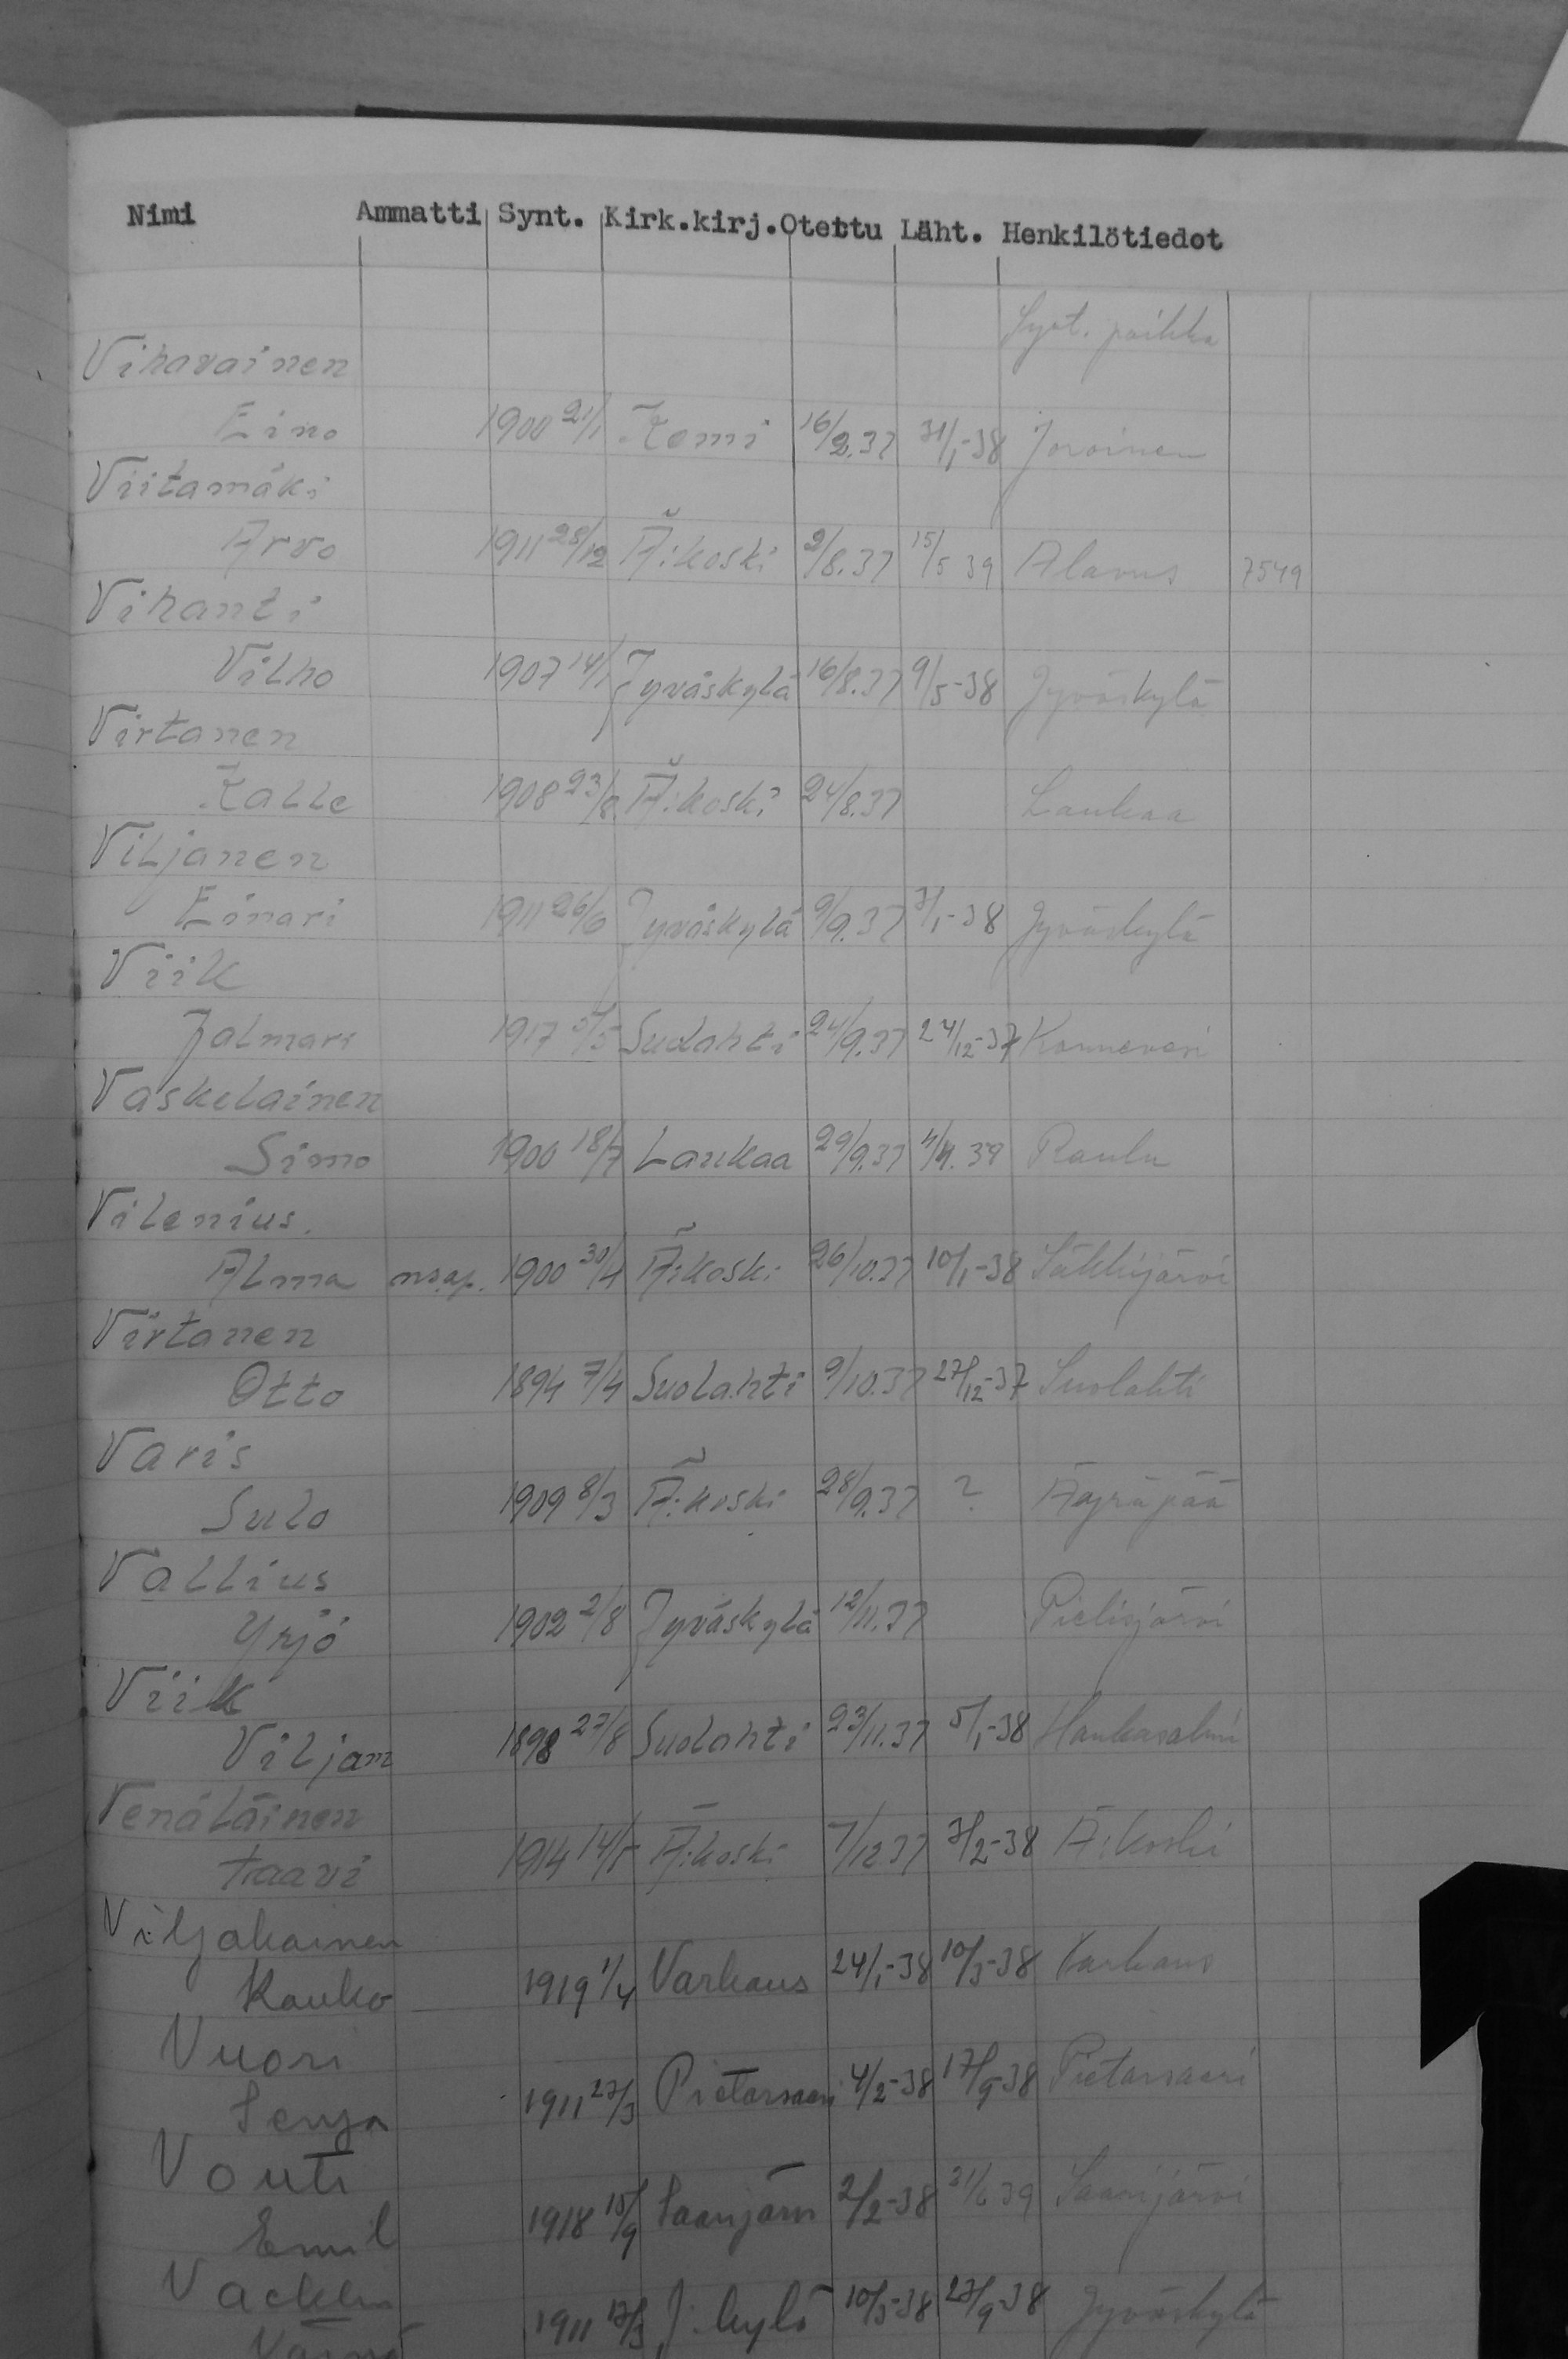 Nimi Ammatti Synt. Kirk.kirj. Otettu Läht. Henkilötiedot
Synt. paikka
Vihavainen
Eino 1900 21/1 Kemi 16/2.37 31/1-38 Joroinen
Viitamäki
Arvo 1911 28/12 Ä:koski 2/8.37 15/5 39 Alavus 7549
Vihanti
Vilho 1907 14/1 Jyväskylä 16/8.37 9/5-38 Jyväskylä
Virtanen
Kalle 1908 23/8 Ä:koski 24/8.37 Laukaa
Viljanen
Einari 1911 26/6 Jyväskylä 9/9.37 7/1-38 Jyväskylä
Viik
Jalmari 1917 Suolahti 24/9.37 24/12-37 Konnevesi
Vaskelainen
Simo 1900 18/7 Laukaa 29/9.37 4/4.39 Rautu
Vilenius.
Alma 1900 30/4 Ä:koski 26/10.37 10/1-38 Säkkijärvi
Virtanen
Otto 1894 7/4 Suolahti 9/10.37 27/12-37 Suolahti
Varis
Sulo 1909 8/3 Ä:koski 28/9.37 ? Äyräpää
Vallius
Yrjö 1902 2/8 Jyväskylä 12/11.37 Pielisjärvi
Viik
Viljam 1898 27/8 Suolahti 23/11.37 5/1-38 Hankasalmi
Venäläinen
Taavi 1914 Ä:koski 7/12 37 7/2-38 Ä:koski
Viljakainen
Kauko 1919 1/4 Varkaus 24/1-38 10/3-38 Varkaus
Vuori
Senja 1911 27/3 Pietarsaari 4/2-38 17/9-38 Pietarsaari
Vouti
Emil 1918 15/9 Saarijärvi 2/2-38 21/6 39 Saarijärvi
1911 17/3 J:kylä 10/3-38 27/9-38 Jyväskylä
Väinö